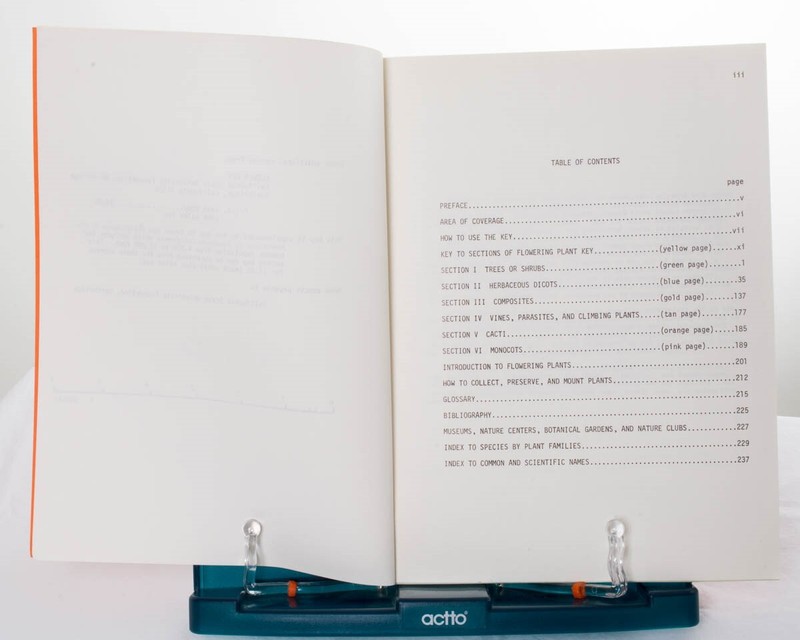 iii
TABLE OF CONTENTS
page
PREFACE..........v
AREA OF COVERAGE..........vi
HOW TO USE THE KEY..........vii
KEY TO SECTIONS OF FLOWERING PLANT KEY..........(yellow page)......xi
SECTION I TREES OR SHRUBS..........(green page)........1
SECTION II HERBACEOUS DICOTS..........(blue page)........35
SECTION III COMPOSITES..........(gold page).......137
SECTION IV VINES, PARASITES, AND CLIMBING PLANTS.....(tan page)........177
SECTION V CACTI..........(orange page).....185
SECTION VI MONOCOTS..........(pink page).......189
INTRODUCTION TO FLOWERING PLANTS..........201
HOW TO COLLECT, PRESERVE, AND MOUNT PLANTS..........212
GLOSSARY..........215
BIBLIOGRAPHY..........225
MUSEUMS, NATURE CENTERS, BOTANICAL GARDENS, AND NATURE CLUBS..........227
INDEX TO SPECIES BY PLANT FAMILIES..........229
INDEX TO COMMON AND SCIENTIFIC NAMES..........237
actto